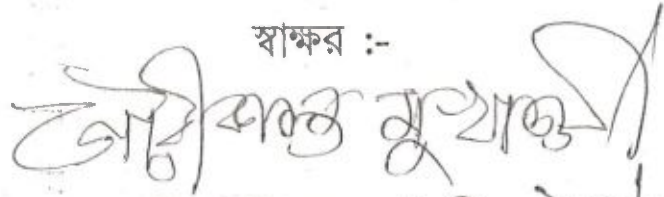 স্বাক্ষর :-
গৌরীকান্ত মুখার্জী